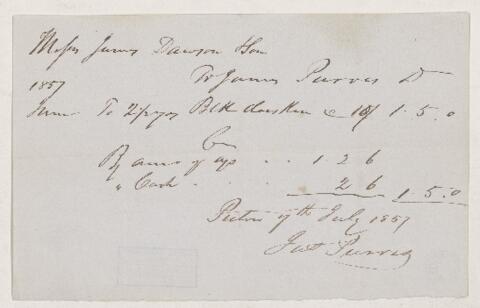 Messrs James Dawson & Son
1857 To James Purves Dr
June To 2½ yds Blk doeskin @ 10/ 1.5.0
Cr
By amt of a/c .. 1 2 6
" Cash .... 2 6 1.5.0
Pictou 7th July 1857
Jas Purves